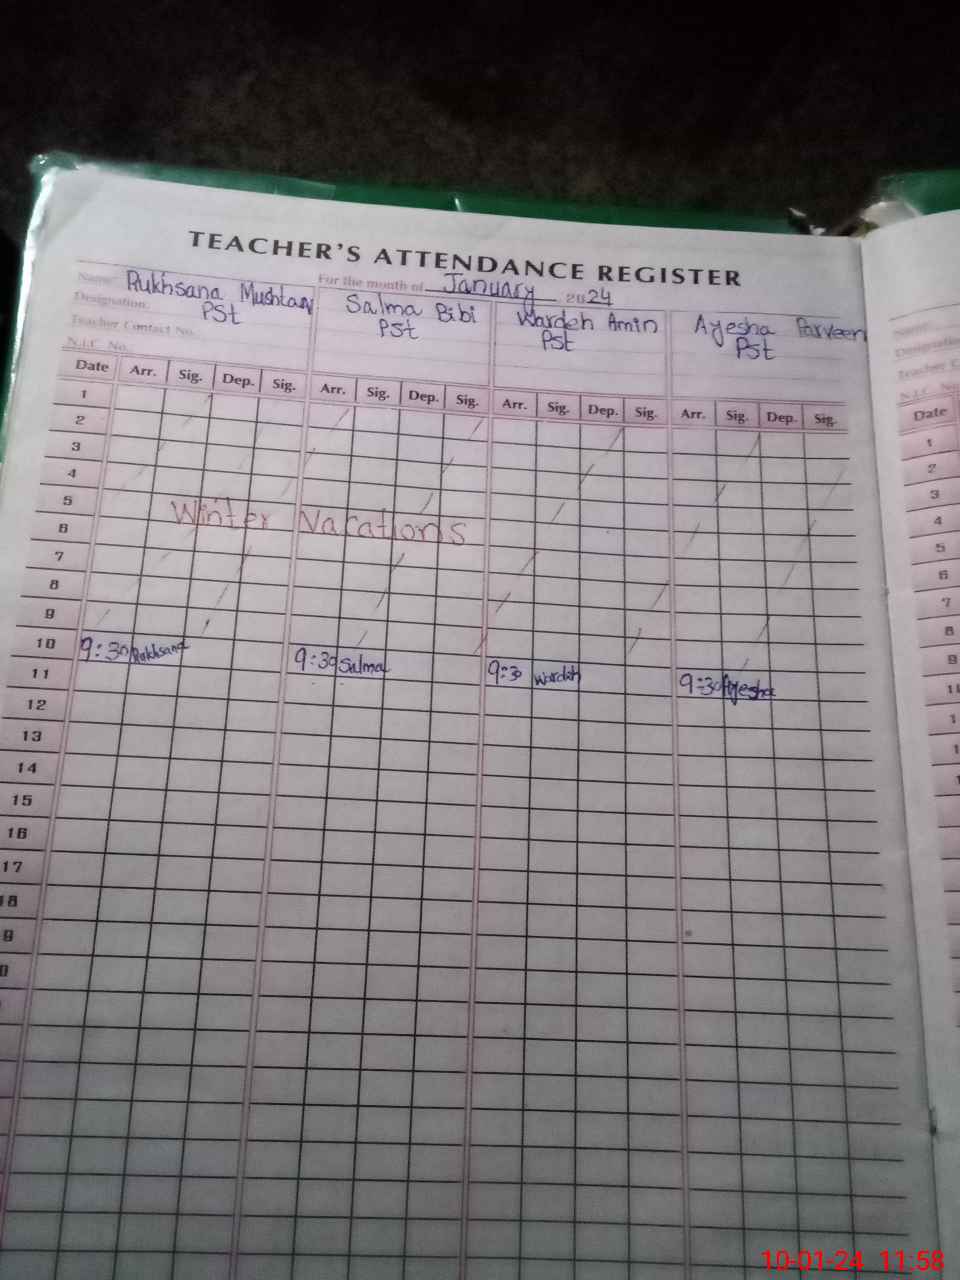 TEACHER'S ATTENDANCE REGISTER
Name: Rukhsana Mushtaq For the month of January 2024
Designation. PSt Salma Bibi PSt Wardah Amin PSt Ayesha Parveen PSt
Teacher Contact No.
N.I.C. No.
Date Arr. Sig. Dep. Sig. Arr. Sig. Dep. Sig. Arr. Sig. Dep. Sig. Arr. Sig. Dep. Sig.
1
2
3
4
5
Winter Vacations
6
7
8
9
10 9:30 Rukhsana 9:30 Salma 9:30 Wardah 9:30 Ayesha
11
12
13
14
15
16
17
18
9
0
Date
1
2
3
4
5
6
7
8
9
10-01-24 11:58